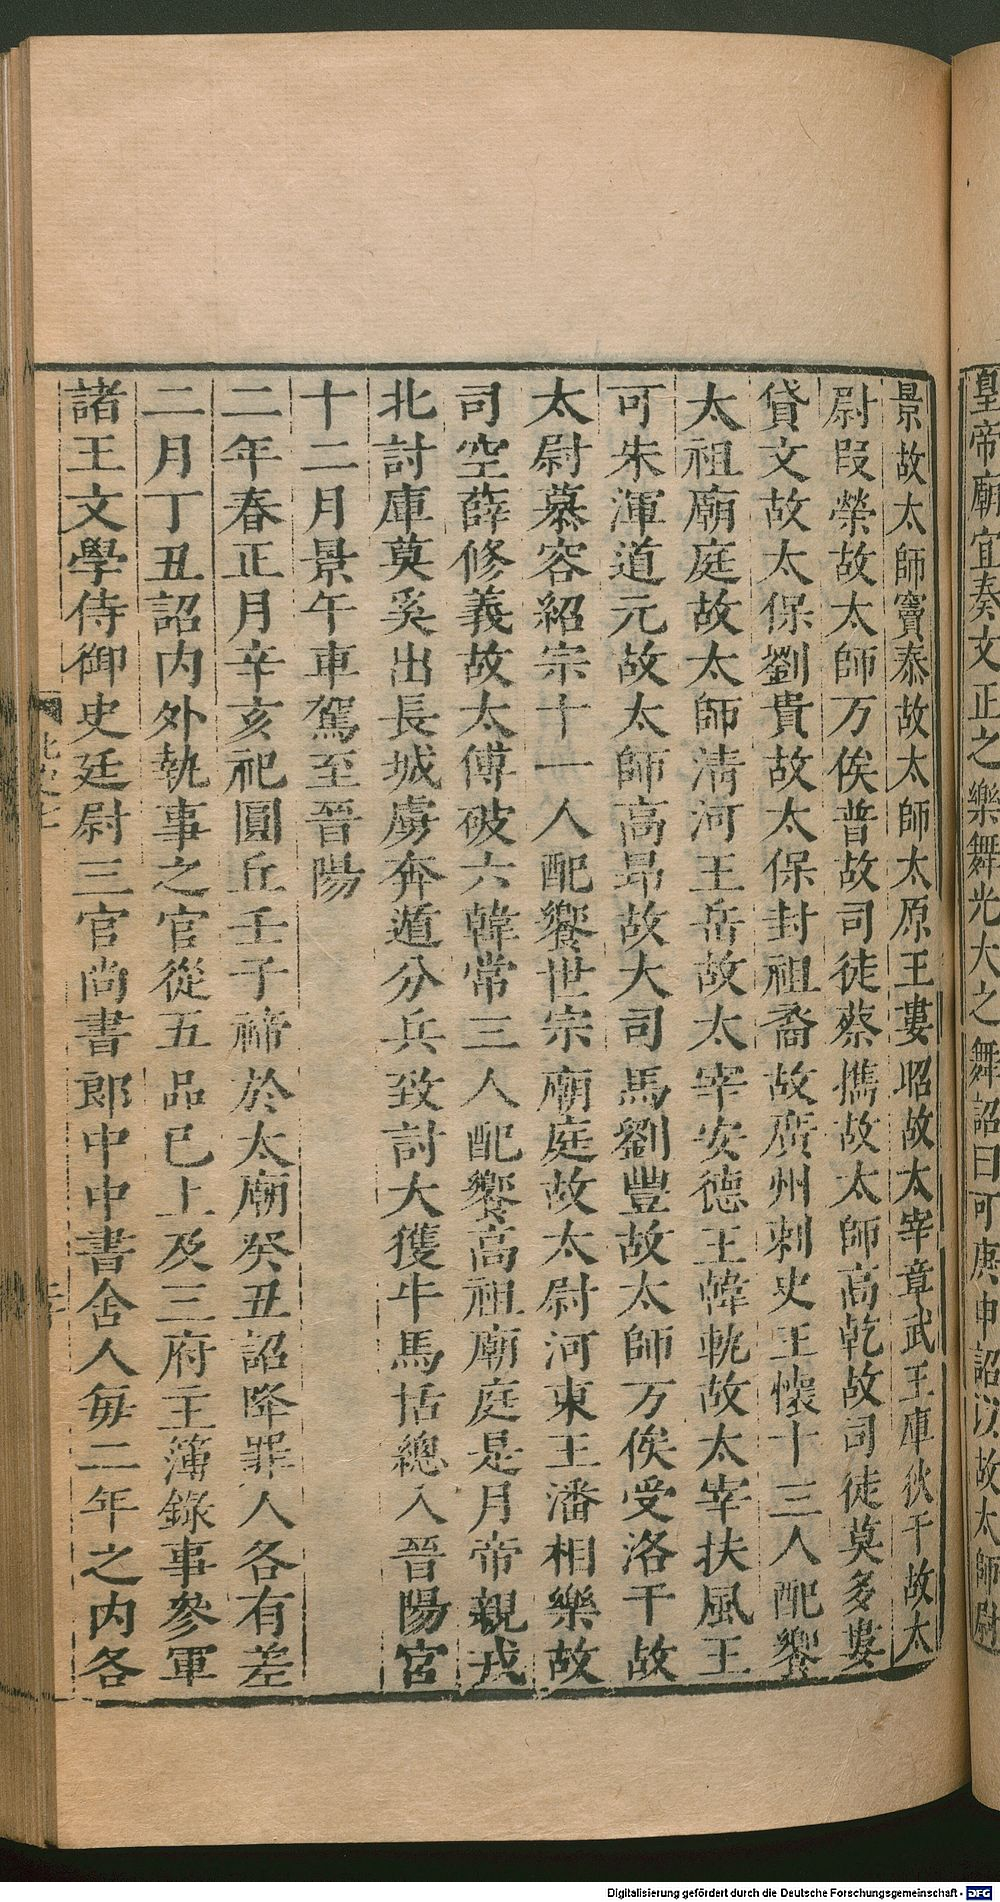 皇帝廟宜奏文正之樂舞光大之舞詔曰可庚申詔以故太師尉
景故太師竇泰故太師太原王婁昭故太宰章武王庫狄干故太
尉叚榮故太師万俟普故司徒蔡攜故太師高乾故司徒莫多婁
貸文故太保劉貴故太保封祖裔故廣州刺史王懷十三人配饗
太祖廟庭故太師清河王岳故太宰安德王韓軌故太宰扶風王
可朱渾道元故太師高昻故大司馬劉豐故太師万俟受洛干故
太尉慕容紹宗十一人配饗世宗廟庭故太尉河東王潘相樂故
司空薛修義故太傅破六韓常三人配饗高祖廟庭是月帝親戎
北討庫莫奚出長城虜奔遁分兵致討大獲牛馬括總入晉陽宮
十二月景午車駕至晉陽
二年春正月辛亥祀圓丘壬子禘於太廟癸丑詔降罪人各有差
二月丁丑詔內外執事之官從五品已上及三府主簿錄事參軍
諸王文學侍御史廷尉三官尚書郎中中書舍人每二年之內各
Digitalisierung gefördert durch die Deutsche Forschungsgemeinschaft - DFG